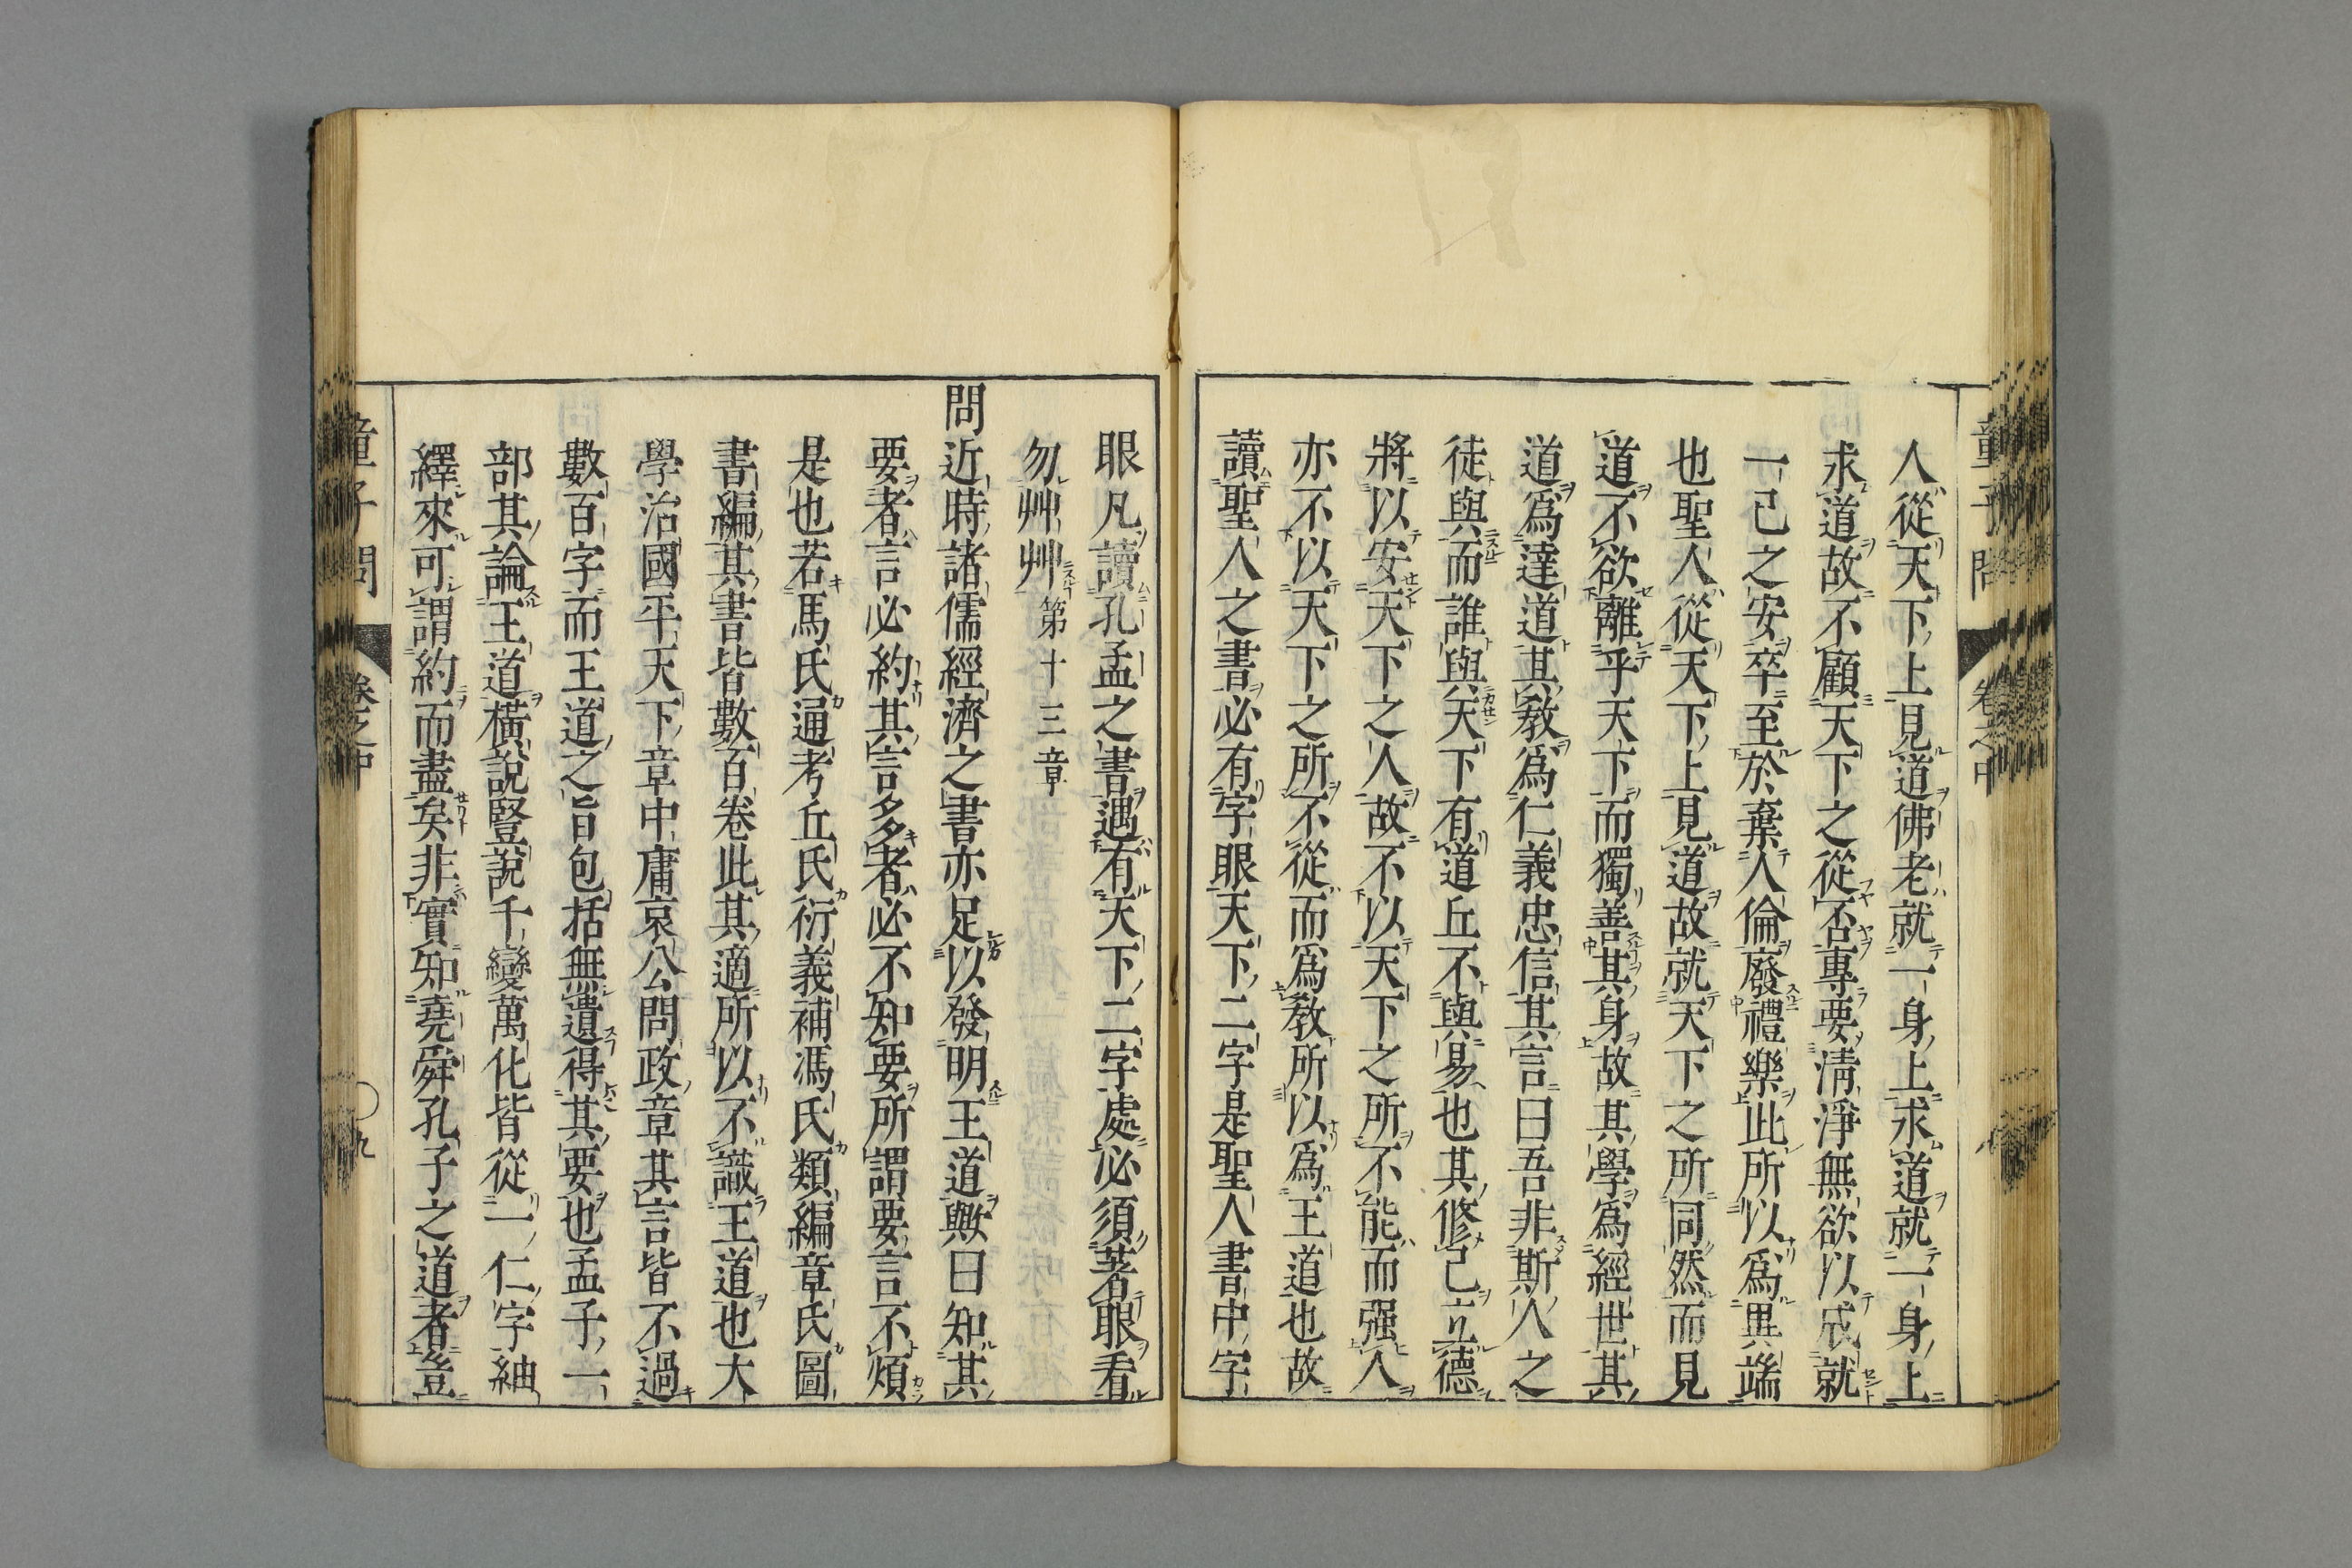 童子問 卷之中
人從天下上見道佛老就一身上求道就一身上
求道故不顧天下之從否專要淸淨無欲以成就
一己之安卒至於棄人倫廢禮樂此所以爲異端
也聖人從天下上見道故就天下之所同然而見
道不欲離乎天下而獨善其身故其學爲經世其
道爲達道其敎爲仁義忠信其言曰吾非斯人之
徒與而誰與天下有道丘不與易也其修己立德
將以安天下之人故不以天下之所不能而强人
亦不以天下之所不從而爲敎所以爲王道也故
讀聖人之書必有字眼天下二字是聖人書中字
眼凡讀孔孟之書遇有天下二字處必須著眼看
勿艸艸第十三章
問近時諸儒經濟之書亦足以發明王道歟曰知其
要者言必約其言多者必不知要所謂要言不煩
是也若馬氏通考丘氏衍義補馮氏類編章氏圖
書編其書皆數百卷此其適所以不識王道也大
學治國平天下章中庸哀公問政章其言皆不過
數百字而王道之旨包括無遺得其要也孟子一
部其論王道橫說豎說千變萬化皆從一仁字紬
繹來可謂約而盡矣非實知堯舜孔子之道者豈
童子問 卷之中 九